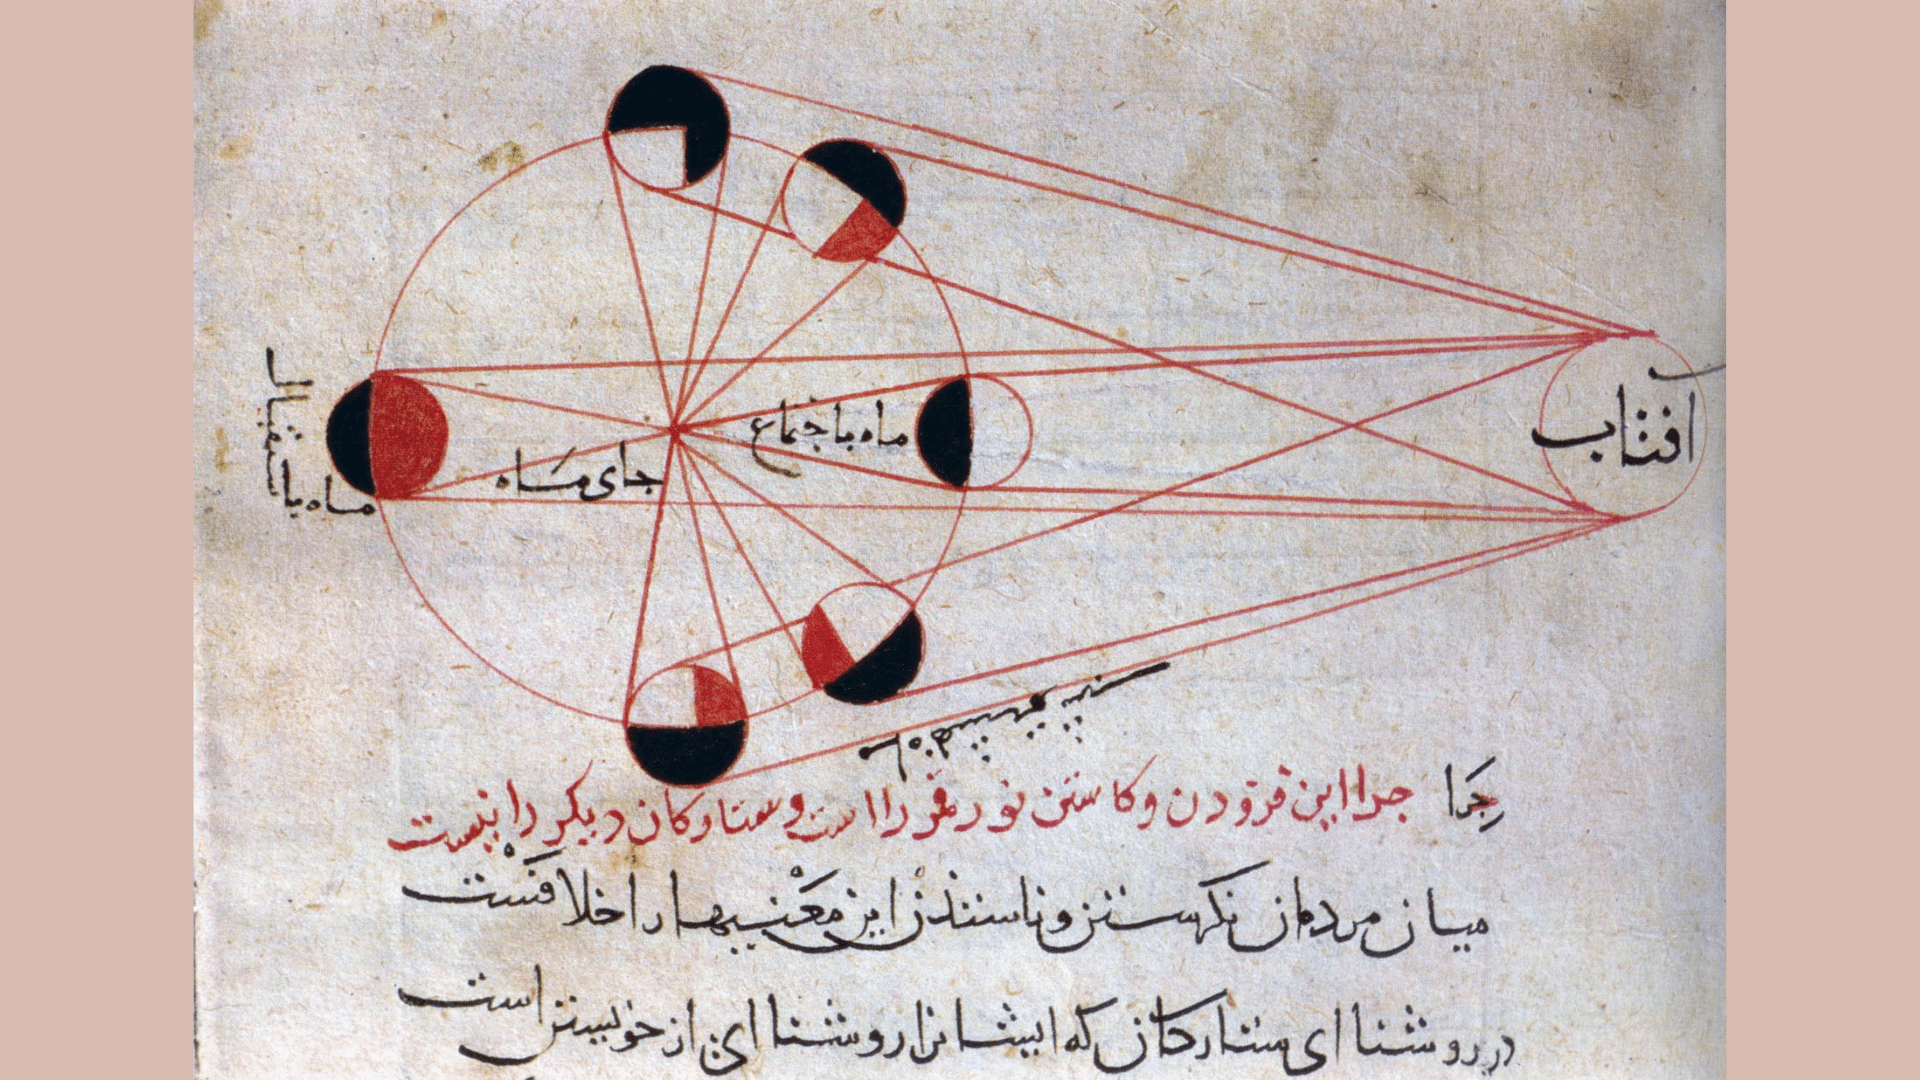 افتاب
ماه باجتماع
جای ماه
ماه باستقبال
چرا
چرا این فزودن وکاستن نور قمر را است وستارکان دیکر را نیست
میان مردمان نکرستن این معنیها را خلافست
در روشنا ای ستارکان که ایشانرا روشنا ای از خویشتن است